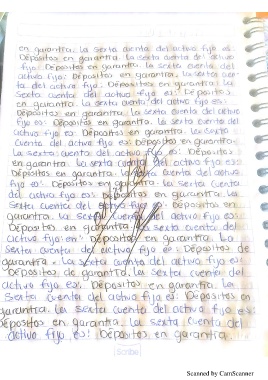 en garantía. La sexta cuenta del activo fijo es:
Depósitos en garantía. La sexta cuenta del activo
fijo: Depósitos en garantía. La sexta cuenta del
activo fijo es: Depósitos en garantía. La sexta cuen
ta del activo fijo es: Depósitos en garantía. La
sexta cuenta del activo fijo es: Depósitos
en garantía. La sexta cuenta del activo fijo es:
Depósitos en garantía. La sexta cuenta del
activo fijo es: Depósitos en garantía. La sexta
Cuenta del activo fijo es: Depósitos en garantía.
La sexta cuenta del activo fijo es: Depósitos
en garantía. La sexta cuenta del activo fijo es:
Depósitos en garantía. La sexta cuenta del activo
fijo es: Depósitos en garantía. La sexta cuenta
del activo fijo es: Depósitos en garantía. La
sexta cuenta del activo fijo es: Depósitos en
garantía. La sexta cuenta del activo fijo es:
Depósitos en garantía. La sexta cuenta del
activo fijo es: Depósitos en garantía. La
Sexta cuenta del activo fijo es: Depósitos de
garantía. La sexta cuenta del activo fijo es:
Depósitos de garantía. La sexta cuenta del
activo fijo es: Depósitos en garantía. La
Sexta cuenta del activo fijo es: Depósitos en
garantía. La sexta cuenta del activo fijo es:
Depósitos en garantía. La sexta cuenta de
activo fijo es: Depósitos en garantía.
Scribe
Scanned by CamScanner